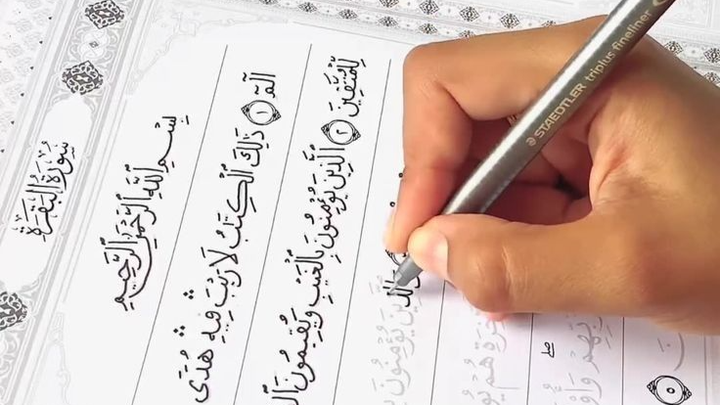 سُورَةُ البَقَرَةِ
بِسْمِ ٱللَّهِ ٱلرَّحْمَٰنِ ٱلرَّحِيمِ
الٓمٓ ١ ذَٰلِكَ ٱلْكِتَٰبُ لَا رَيْبَ ۛ فِيهِ ۛ هُدًى
لِّلْمُتَّقِينَ ٢ ٱلَّذِينَ يُؤْمِنُونَ بِٱلْغَيْبِ وَيُقِيمُونَ
وَٱلَّذِينَ يُؤْمِنُونَ
هُمْ
٥
STAEDTLER triplus fineliner